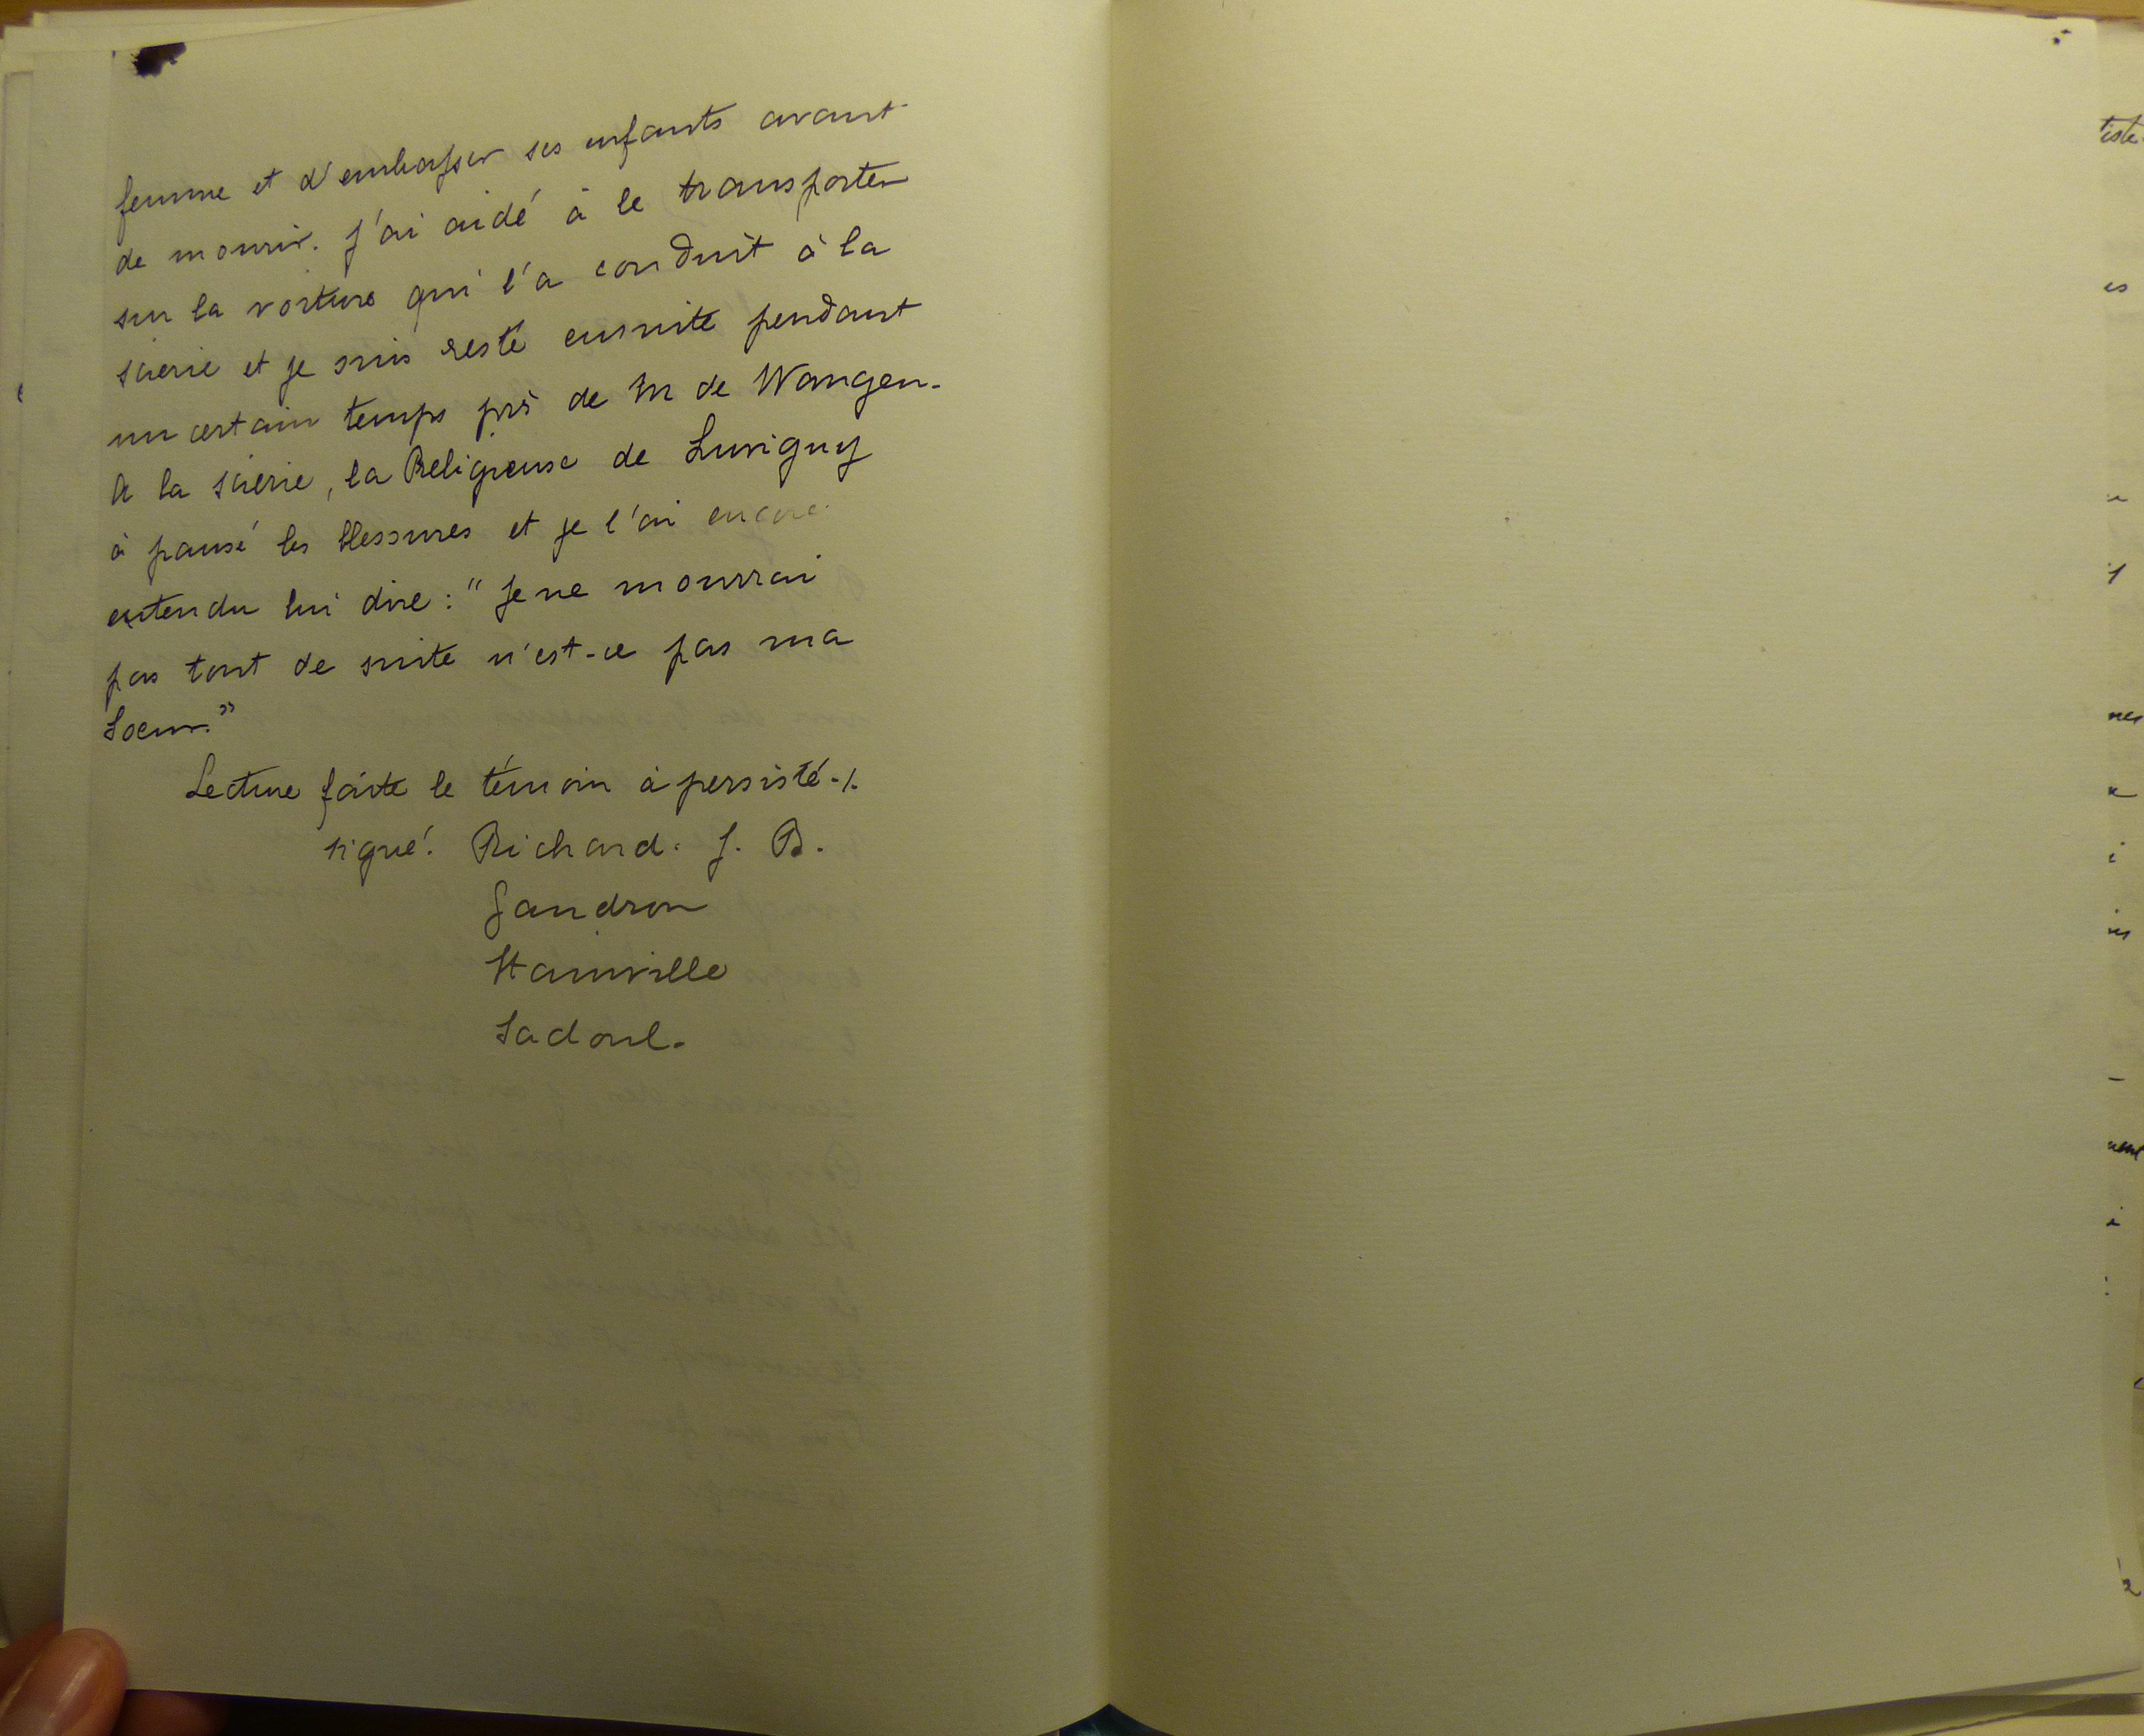 femme et d'embrasser ses enfants avant
de mourir. J'ai aidé à le transporter
sur la voiture qui l'a conduit à la
scierie et je suis resté ensuite pendant
un certain temps près de M de Wangen.
A la scierie, la Religieuse de Luvigny
à pansé les blessures et je l'ai encore
entendu lui dire : "Je ne mourrai
pas tout de suite n'est-ce pas ma
Soeur."
Lecture faite le témoin à persisté./.
signé : Richard. J. B.
Gandron
Stainville
Sadoul.